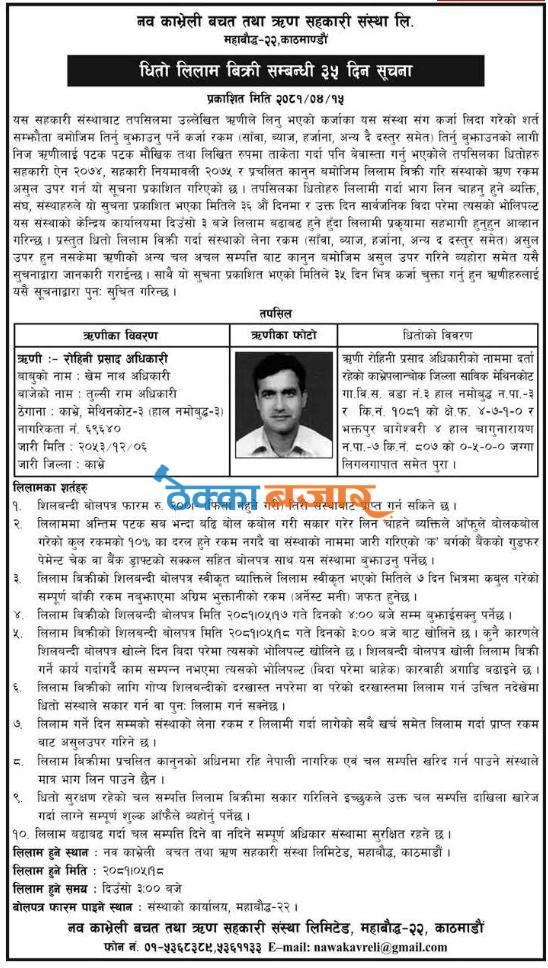 नव काभ्रेली बचत तथा ऋण सहकारी संस्था लि.
महाबौद्ध-२२,काठमाण्डौं
धितो लिलाम बिक्री सम्बन्धी ३५ दिन सूचना
प्रकाशित मिति २०८१/०४/१५
यस सहकारी संस्थाबाट तपसिलमा उल्लेखित ऋणीले लिनु भएको कर्जाका यस संस्था संग कर्जा लिदा गरेको शर्त
सम्झौता बमोजिम तिर्नु बुझाउनु पर्ने कर्जा रकम (साँवा, ब्याज, हर्जाना, अन्य दै दस्तुर समेत) तिर्नु बुझाउनको लागी
निज ऋणीलाई पटक पटक मौखिक तथा लिखित रुपमा ताकेता गर्दा पनि बेवास्ता गर्नु भएकोले तपसिलका धितोहरु
सहकारी ऐन २०७४, सहकारी नियमावली २०७५ र प्रचलित कानुन बमोजिम लिलाम बिक्री गरि संस्थाको ऋण रकम
असुल उपर गर्न यो सूचना प्रकाशित गरिएको छ । तपसिलका धितोहरु लिलामी गर्दा भाग लिन चाहनु हुने व्यक्ति,
संघ, संस्थाहरुले यो सुचना प्रकाशित भएका मितिले ३६ औं दिनमा र उक्त दिन सार्वजनिक विदा परेमा त्यसको भोलिपल्ट
यस संस्थाको केन्द्रिय कार्यालयमा दिउँसो ३ बजे लिलाम बढाबढ हुने हुँदा लिलामी प्रकृयामा सहभागी हुनुहुन आव्हान
गरिन्छ । प्रस्तुत धितो लिलाम बिक्री गर्दा संस्थाको लेना रकम (साँवा, ब्याज, हर्जाना, अन्य द दस्तुर समेत) असुल
उपर हुन नसकेमा ऋणीको अन्य चल अचल सम्पत्ति बाट कानुन बमोजिम असुल उपर गरिने व्यहोरा समेत यसै
सुचनाद्वारा जानकारी गराईन्छ । साथै यो सूचना प्रकाशित भएको मितिले ३५ दिन भित्र कर्जा चुक्ता गर्नु हुन ऋणीहरुलाई
यसै सूचनाद्वारा पुनः सुचित गरिन्छ ।
तपसिल
ऋणीका विवरण
ऋणीको फोटो
धितोको विवरण
ऋणी :- रोहिनी प्रसाद अधिकारी
बाबुको नाम : खेम नाथ अधिकारी
बाजेको नाम : तुल्सी राम अधिकारी
ठेगाना : काभ्रे, मेथिनकोट-३ (हाल नमोबुद्ध-३)
नागरिकता नं. ६९६४०
जारी मिति : २०५३/१२/०६
जारी जिल्ला : काभ्रे
ऋणी रोहिनी प्रसाद अधिकारीको नाममा दर्ता
रहेको काभ्रेपलान्चोक जिल्ला साविक मेथिनकोट
गा.बि.स. वडा नं.३ हाल नमोबुद्ध न.पा.-३
र कि.नं. १०८१ को क्षे.फ. ४-७-१-० र
भक्तपुर बागेश्वरी ४ हाल चागुनारायण
न.पा.-७ कि.नं. ८०७ को ०-५-०-० जग्गा
लिगलगापात समेत पुरा ।
ठेक्का बजार
लिलामका शर्तहरु
१. शिलबन्दी बोलपत्र फारम रु. तिरी संस्थाबाट प्राप्त गर्न सकिने छ ।
२. लिलाममा अन्तिम पटक सब भन्दा बढि बोल कबोल गरी सकार गरेर लिन चाहने व्यक्तिले आँफुले बोलकबोल
गरेको कुल रकमको १०% का दरल हुने रकम नगदै वा संस्थाको नाममा जारी गरिएको 'क' बर्गको बैंकको गुडफर
पेमेन्ट चेक वा बैंक ड्राफ्टको सक्कल सहित बोलपत्र साथ यस संस्थामा बुझाउनु पर्नेछ ।
३. लिलाम बिक्रीको शिलबन्दी बोलपत्र स्वीकृत ब्यात्तिले लिलाम स्वीकृत भएको मितिले ७ दिन भित्रमा कबुल गरेको
सम्पूर्ण बाँकी रकम नबुझाएमा अग्रिम भुक्तानीको रकम (अर्नेस्ट मनी) जफत हुनेछ ।
४. लिलाम बिक्रीको शिलबन्दी बोलपत्र मिति २०८१।०५।१७ गते दिनको ४:०० बजे सम्म बुझाईसक्नु पर्नेछ ।
५. लिलाम बिक्रीको शिलबन्दी बोलपत्र मिति २०८१।०५।१८ गते दिनको ३:०० बजे बाट खोलिने छ । कुनै कारणले
शिलबन्दी बोलपत्र खोल्ने दिन बिदा परेमा त्यसको भोलिपल्ट खोलिने छ । शिलबन्दी बोलपत्र खोली लिलाम बिक्री
गर्ने कार्य गर्दागर्दै काम सम्पन्न नभएमा त्यसको भोलिपल्ट (बिदा परेमा बाहेक) कारवाही अगाडि बढाइने छ ।
६. लिलाम बिक्रीको लागि गोप्य शिलबन्दीको दरखास्त नपरेमा वा परेको दरखास्तमा लिलाम गर्न उचित नदेखेमा
धितो संस्थाले सकार गर्न वा पुनः लिलाम गर्न सक्नेछ ।
७. लिलाम गर्ने दिन सम्मको संस्थाको लेना रकम र लिलामी गर्दा लागेको सबै खर्च समेत लिलाम गर्दा प्राप्त रकम
बाट असुलउपर गरिने छ ।
८. लिलाम बिक्रीमा प्रचलित कानुनको अधिनमा रहि नेपाली नागरिक एवं चल सम्पत्ति खरिद गर्न पाउने संस्थाले
मात्र भाग लिन पाउने छैन ।
९. धितो सुरक्षण रहेको चल सम्पत्ति लिलाम बिक्रीमा सकार गरिलिने इच्छुकले उक्त चल सम्पत्ति दाखिला खारेज
गर्दा लाग्ने सम्पूर्ण शुल्क आँफैले ब्यहोर्नु पर्नेछ ।
१०. लिलाम बढाबढ गर्दा चल सम्पत्ति दिने वा नदिने सम्पूर्ण अधिकार संस्थामा सुरक्षित रहने छ ।
लिलाम हुने स्थान : नव काभ्रेली बचत तथा ऋण सहकारी संस्था लिमिटेड, महाबौद्ध, काठमाडौं ।
लिलाम हुने मिति : २०८१।०५।१८
लिलाम हुने समय : दिउँसो ३:०० बजे
बोलपत्र फारम पाइने स्थान : संस्थाको कार्यालय, महाबौद्ध-२२ ।
नव काभ्रेली बचत तथा ऋण सहकारी संस्था लिमिटेड, महाबौद्ध-२२, काठमाडौं
फोन नं. ०१-५३६८३८९,५३६११३३ E-mail: nawakavreli@gmail.com